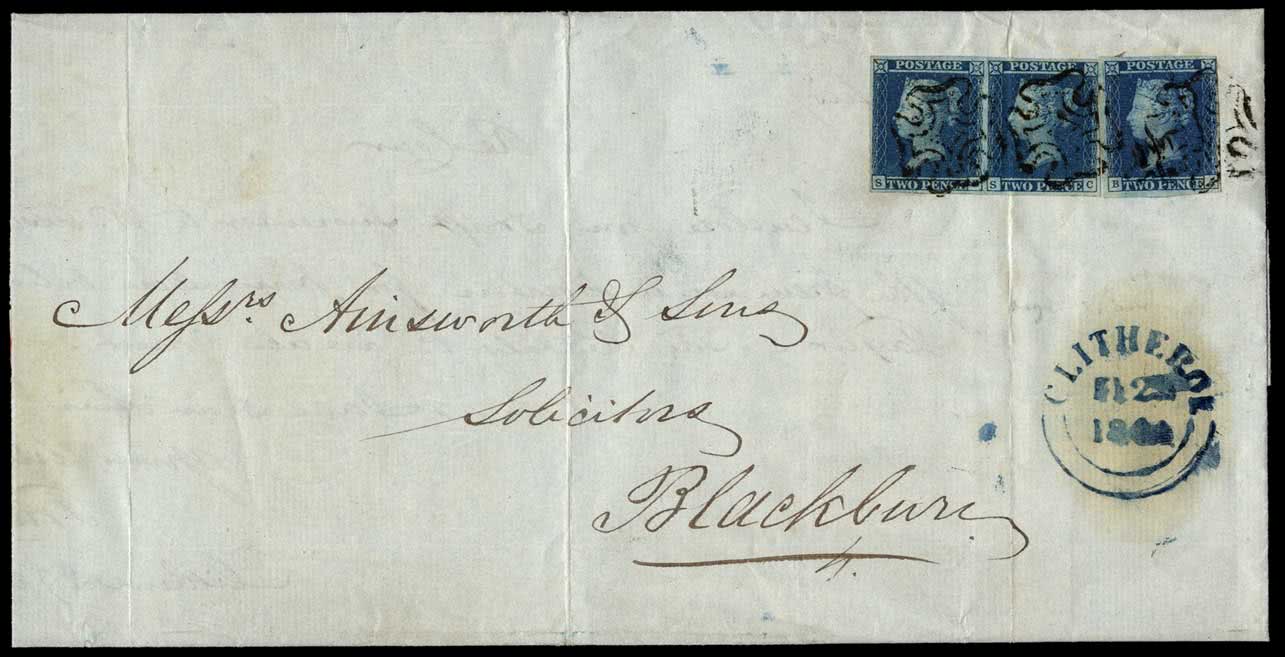 POSTAGE POSTAGE POSTAGE
S TWO PENCE S TWO PENCE C B TWO PENCE
Messrs. Ainsworth & Sons
Solicitors
Blackburn
CLITHEROE
184